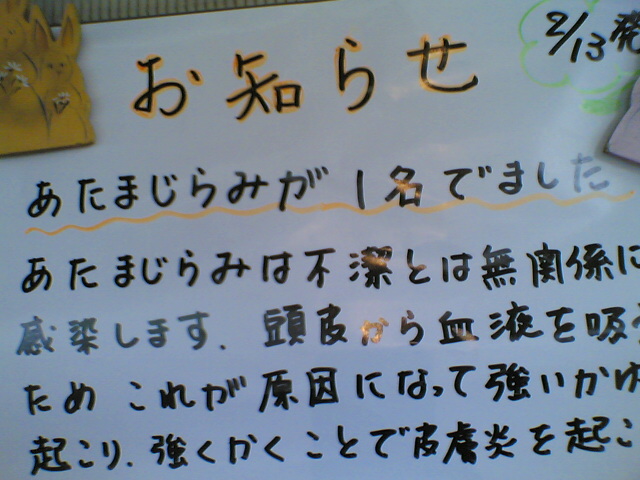 2/13 発
お知らせ
あたまじらみが 1名でました
あたまじらみは不潔とは無関係に
感染します. 頭皮から血液を吸
ため これが原因になって強いかゆ
起こり. 強くかくことで皮膚炎を起こ